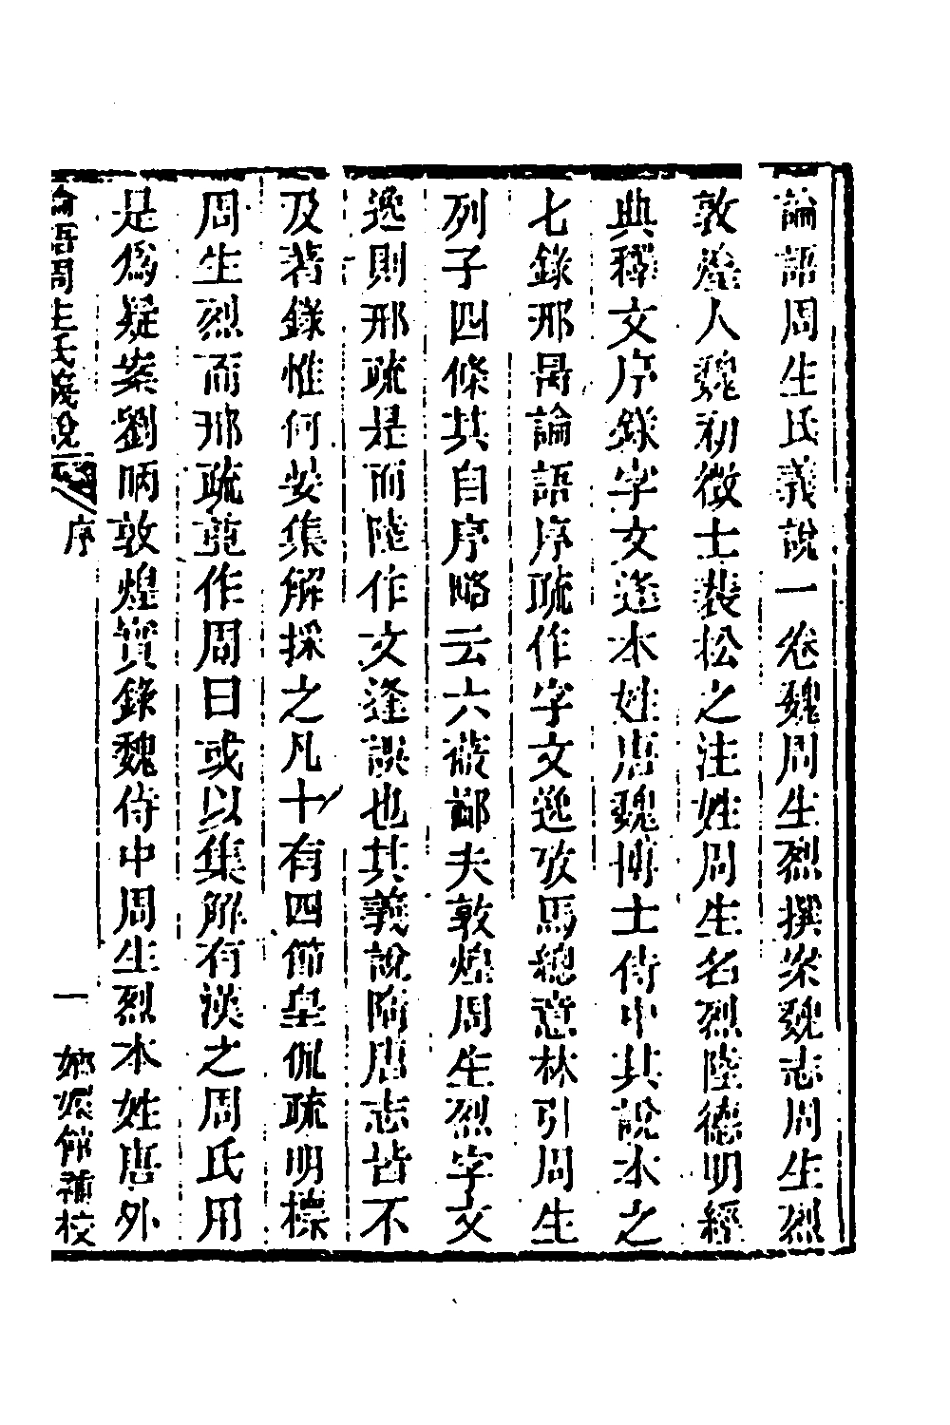 論語周生氏義說一卷魏周生烈撰案魏志周生烈
敦煌人魏初徵士裴松之注姓周生名烈陸德明經
典釋文序錄字文逢本姓唐魏博士侍中其說本之
七錄邢昺論語序疏作字文逸攷馬總意林引周生
列子四條其自序略云六蔽鄙夫敦煌周生烈字文
逸則邢疏是而陸作文逢誤也其義說隋唐志皆不
及著錄惟何晏集解採之凡十有四節皇侃疏明標
周生烈而邢疏竟作周曰或以集解有漢之周氏用
是為疑案劉昞敦煌實錄魏侍中周生烈本姓唐外
論語周生氏義說 序 一 嫏嬛館補校